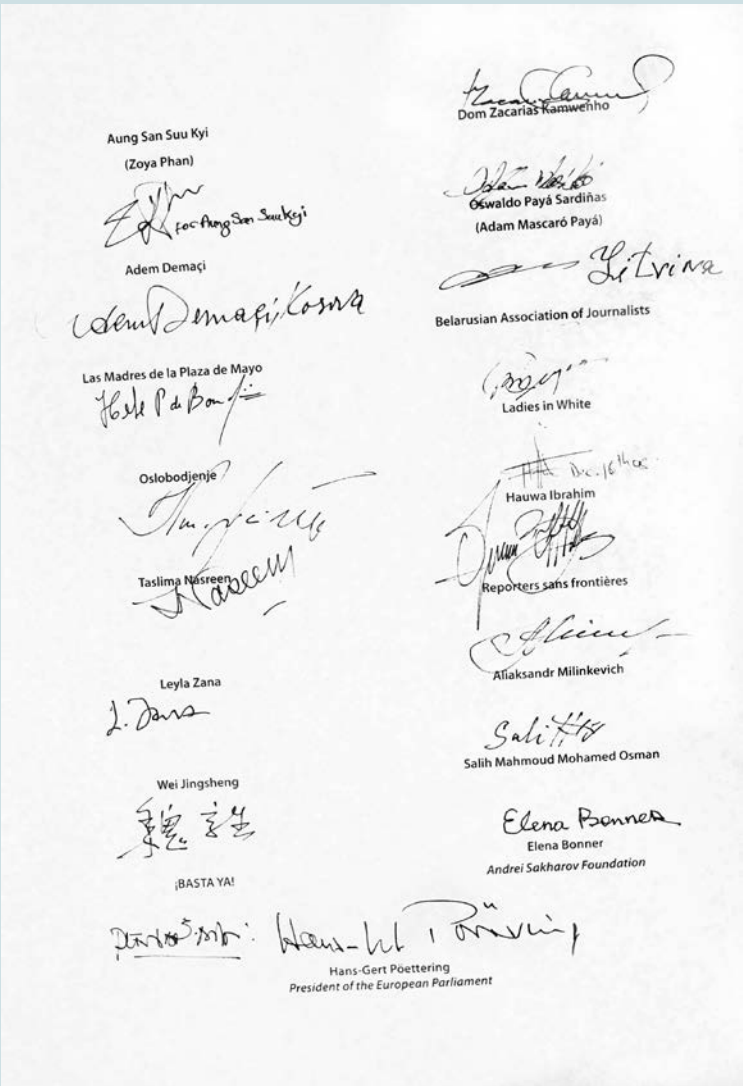 Aung San Suu Kyi
(Zoya Phan)
for Aung San Suu Kyi
Adem Demaçi
Adem Demaçi, Kosova
Las Madres de la Plaza de Mayo
Hebe P de Bonafini
Oslobodjenje
Taslima Nasreen
Nasreen
Leyla Zana
L. Zana
Wei Jingsheng
魏京生
¡BASTA YA!
Dom Zacarias Kamwenho
Oswaldo Payá Sardiñas
(Adam Mascaró Payá)
Litvina
Belarusian Association of Journalists
Ladies in White
Dec. 16th 08
Hauwa Ibrahim
Reporters sans frontières
Aliaksandr Milinkevich
Salih
Salih Mahmoud Mohamed Osman
Elena Bonner
Elena Bonner
Andrei Sakharov Foundation
Hans-Gert Pöettering
Hans-Gert Pöettering
President of the European Parliament